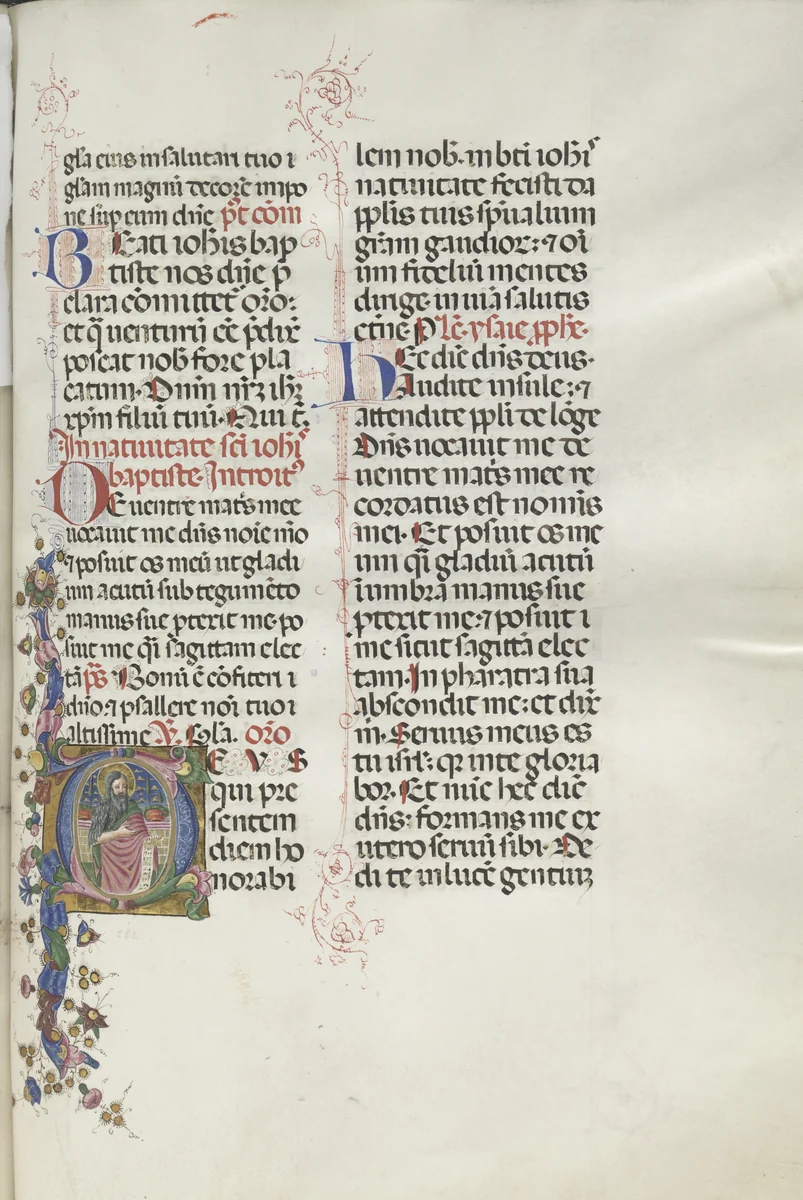 gl̃a eius in salutari tuo ⁊
gl̃am magnū decorē impo
ne sup eum dñe p̃t cōm
Beati ioħis bap
tiste nos dñe p̃
clara cōmittet̃ orō:
et q̃ venturū ēē p̃dix̃
poscat nob̃ fore pla
catum. Dnm nr̃ꝫ ih̃ꝫ
xp̃m filiū tuū. Qui t̃.
In natiuitate sc̃i ioħis
baptiste. Introitꝰ
De uentre mat̃s mee
uocauit me dñs noīe m̃o
⁊ posuit os meū ut gladi
um acutū sub tegumēto
manus sue p̱texit me. po
suit me q̃i sagittam elec
tā p̃s Bonū ē cōfiteri ⁊
dño. ⁊ psallere noī tuo ⁊
altissime ℟. sol̃a. orō
DEVS
qui pre
sentem
diem ho
norabi
lem nob̃. in bt̃i ioħis
natiuitate fecisti da
pp̱lis tuis sp̃ualium
gr̃am gaudioꝝ: ⁊ oī
um fideliū mentes
dirige. in uiā salutis
etñe P̃ Lc̃. ysaie ꝓph̃e.
Hec dic̃ dñs deus.
Audite insule: ⁊
attendite pp̱li de lōge
Dñs uocauit me de
uentre mat̃s mee re
cordatus est nomīs
mei. Et posuit os me
um q̃i gladiū acutū
ī umbra manus sue
p̱texit me: ⁊ posuit ⁊
me sicut sagittā elec
tam. In pharatra sua
abscondit me: et dix̃
m̃. Seruus meus es
tu isr̃l: qꝛ in te gloria
bor. Et nūc hec dic̃
dñs: formans me ex
utero seruū sibi. De
di te in lucē gentiuꝫ